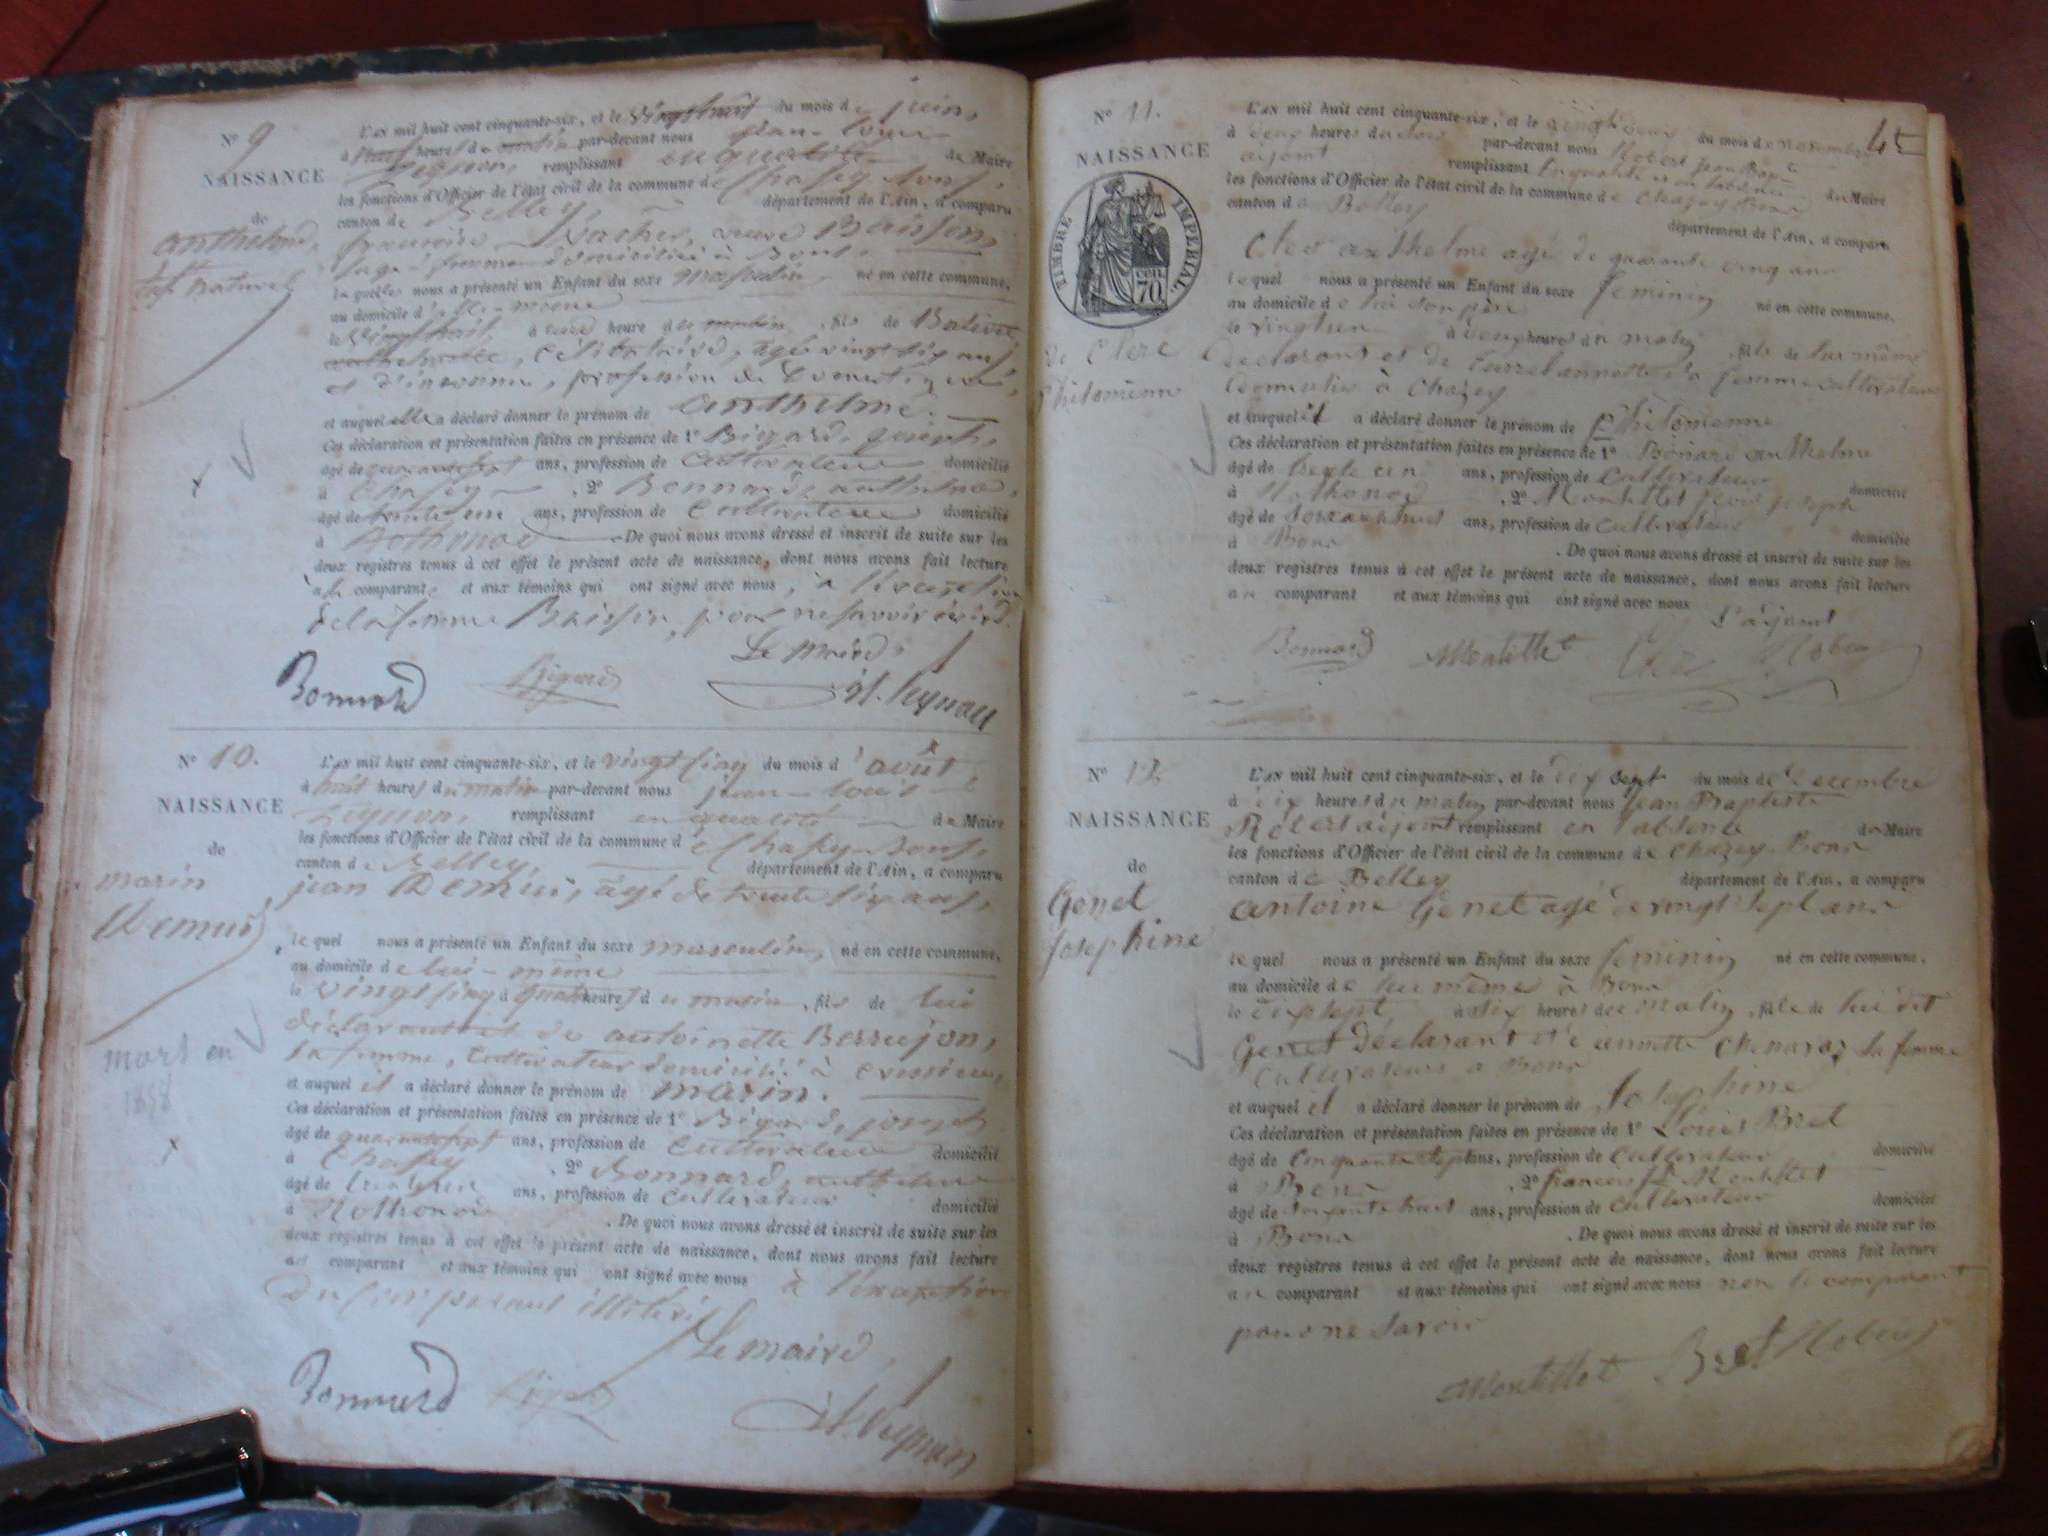 N° 9
NAISSANCE
de
anthelme,
naturel
L'AN mil huit cent cinquante-six, et le vingt huit du mois de juin,
à huit heures du matin par-devant nous jean-louis
remplissant en qualité de Maire
les fonctions d'Officier de l'état civil de la commune de Chazey Bons,
canton de Belley, département de l'Ain, a comparu
Vacher, veuve Baisson,
sage-femme domiciliée à Bons,
laquelle nous a présenté un Enfant du sexe masculin né en cette commune,
au domicile d'elle-même
le vingt huit, à heure du matin, fils de
célibataire, âgée vingt six ans
profession de
et auquel elle a déclaré donner le prénom de anthelme.
Ces déclaration et présentation faites en présence de 1° Bigard, joseph,
âgé de quarante sept ans, profession de Cultivateur domicilié
à Chazey, 2° Bonnard, anthelme,
âgé de trente un ans, profession de Cultivateur domicilié
à Rothonod De quoi nous avons dressé et inscrit de suite sur les
deux registres tenus à cet effet le présent acte de naissance, dont nous avons fait lecture
à la comparant, et aux témoins qui ont signé avec nous, à l'exception
de la femme Baisson, pour ne savoir écrire.
Le maire,
Bonnard Bigard
N° 10.
NAISSANCE
de
marin
Demur
mort en
1858
L'AN mil huit cent cinquante-six, et le vingt cinq du mois d'août,
à huit heures du matin par-devant nous jean-louis
remplissant en qualité de Maire
les fonctions d'Officier de l'état civil de la commune de Chazey-Bons,
canton de Belley, département de l'Ain, a comparu
jean Demur, âgé de trente six ans,
lequel nous a présenté un Enfant du sexe masculin, né en cette commune,
au domicile de lui-même
le vingt cinq à quatre heures du matin, fils de lui
déclarant et de antoinette Berrujon,
sa femme, Cultivateur domicilié à
et auquel il a déclaré donner le prénom de marin.
Ces déclaration et présentation faites en présence de 1° Bigard, joseph
âgé de quarante sept ans, profession de Cultivateur domicilié
à Chazey, 2° Bonnard, anthelme
âgé de trente un ans, profession de Cultivateur domicilié
à Rothonod. De quoi nous avons dressé et inscrit de suite sur les
deux registres tenus à cet effet le présent acte de naissance, dont nous avons fait lecture
au comparant et aux témoins qui ont signé avec nous à l'exception
du comparant illitéré
Le maire,
Bonnard Bigard
45
N° 11.
NAISSANCE
TIMBRE IMPERIAL
70 cen
de Clerc
Philomenne
L'AN mil huit cent cinquante-six, et le vingt deux du mois de novembre
à deux heures du soir par-devant nous Robert jean Bap te
adjoint remplissant en l'absence du Maire
les fonctions d'Officier de l'état civil de la commune de Chazey Bons
canton de Belley département de l'Ain, a comparu
Clerc anthelme agé de quarante cinq ans
lequel nous a présenté un Enfant du sexe feminin né en cette commune,
au domicile de lui son père
le vingt un à deux heures du matin, fils de lui même
declarant et de annette sa femme cultivateurs
à Chazey
et auquel il a déclaré donner le prénom de Philomenne
Ces déclaration et présentation faites en présence de 1° Bonard anthelme
âgé de trente un ans, profession de Cultivateur domicilié
à Rothonod, 2° Montillet joseph
âgé de soixante huit ans, profession de Cultivateur domicilié
à Bons. De quoi nous avons dressé et inscrit de suite sur les
deux registres tenus à cet effet le présent acte de naissance, dont nous avons fait lecture
au comparant et aux témoins qui ont signé avec nous
L'adjoint
Bonnard Montillet Clerc Robert
N° 12
NAISSANCE
de
Genet
Josephine
L'AN mil huit cent cinquante-six, et le dix sept du mois de decembre
à dix heures du matin par-devant nous Jean Baptiste
Robert adjoint remplissant en l'absence du Maire
les fonctions d'Officier de l'état civil de la commune de Chazey-Bons
canton de Belley département de l'Ain, a comparu
antoine Genet agé de vingt sept ans
lequel nous a présenté un Enfant du sexe feminin né en cette commune,
au domicile de lui même à Bons
le dix sept, à six heures du matin, fille de lui dit
Genet déclarant et d'annette Chenaraz sa femme
Cultivateurs à Bons
et auquel il a déclaré donner le prénom de Josephine
Ces déclaration et présentation faites en présence de 1° Louis Bret
âgé de Cinquante sept ans, profession de Cultivateur domicilié
à Bons, 2° francois Montillet
âgé de soixante huit ans, profession de Cultivateur domicilié
à Bons. De quoi nous avons dressé et inscrit de suite sur les
deux registres tenus à cet effet le présent acte de naissance, dont nous avons fait lecture
au comparant et aux témoins qui ont signé avec nous non le comparant
pour ne savoir
Montillet Bret Robert